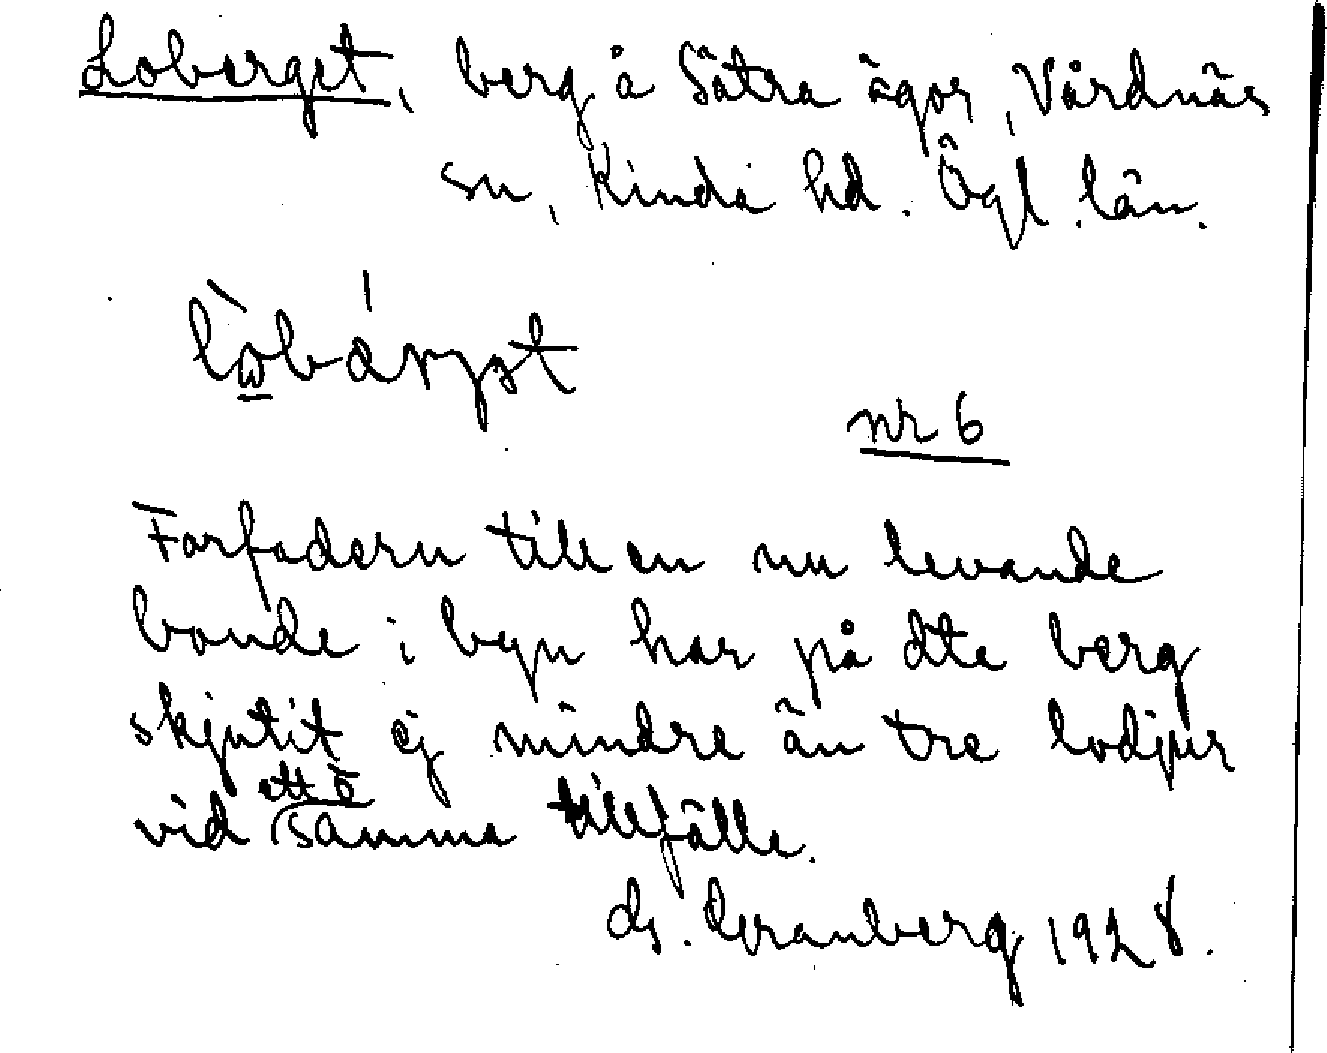 Loberget, berg å Sätra ägor, Vårdnäs
sn, Kinda hd. Ögl. län.
nr 6
Farfadern till en nu levande
bonde i byn har på dte berg
skjutit ej mindre än tre lodjur
ett o
vid samma tillfälle.
G. Granberg 1928.